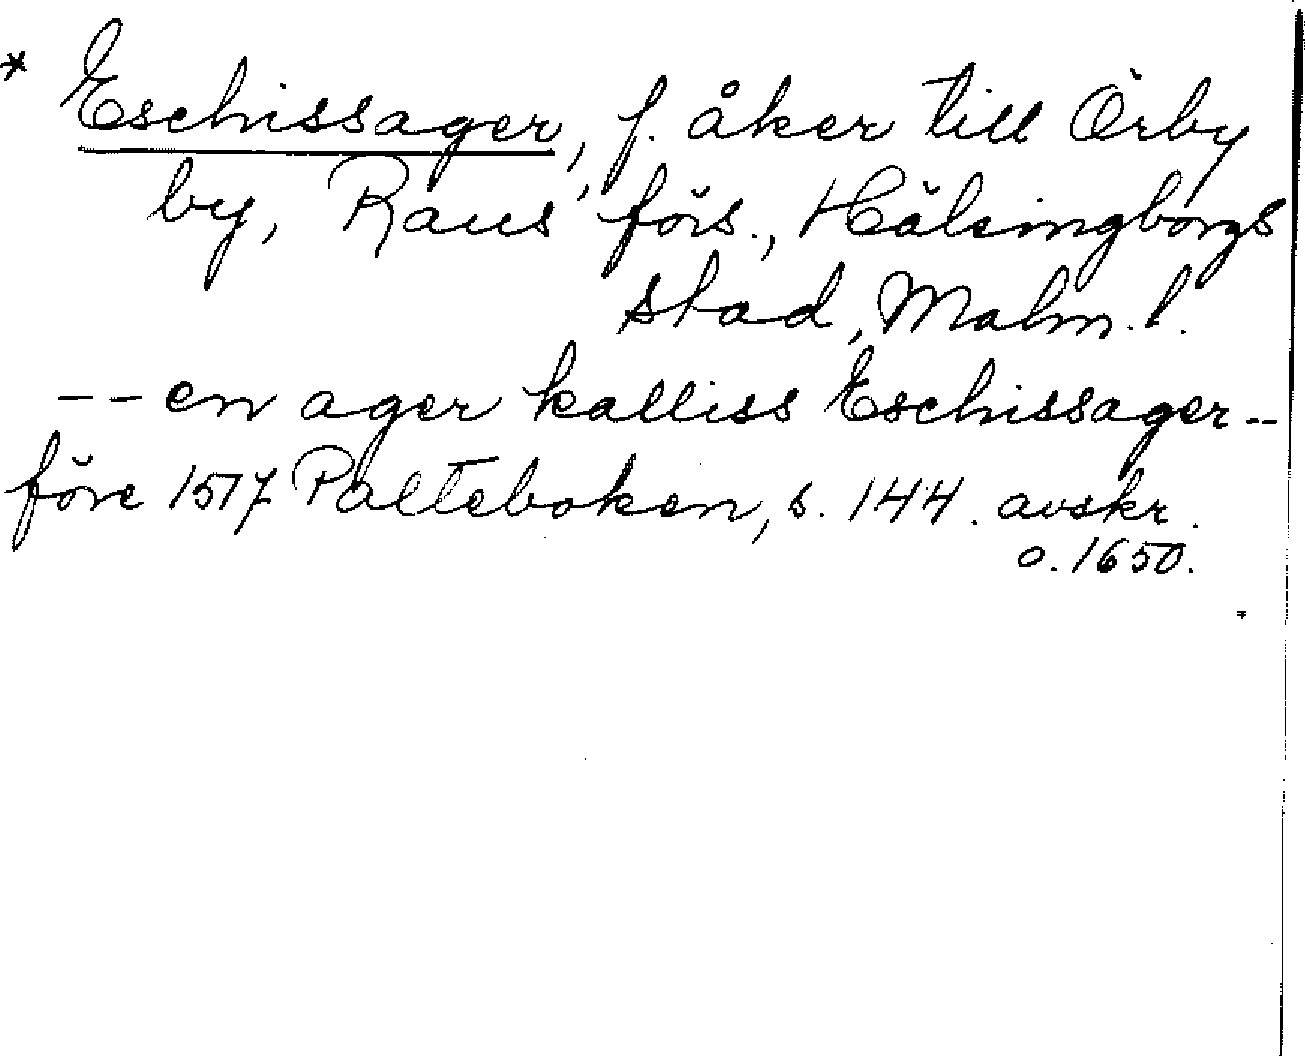 * Eschissager, f. åker till Örby
by, Raus' förs., Hälsingborgs
stad, Malm. l.
-- en ager kalliss Eschissager --
före 1517 Palteboken, s. 144. avskr.
o. 1650.